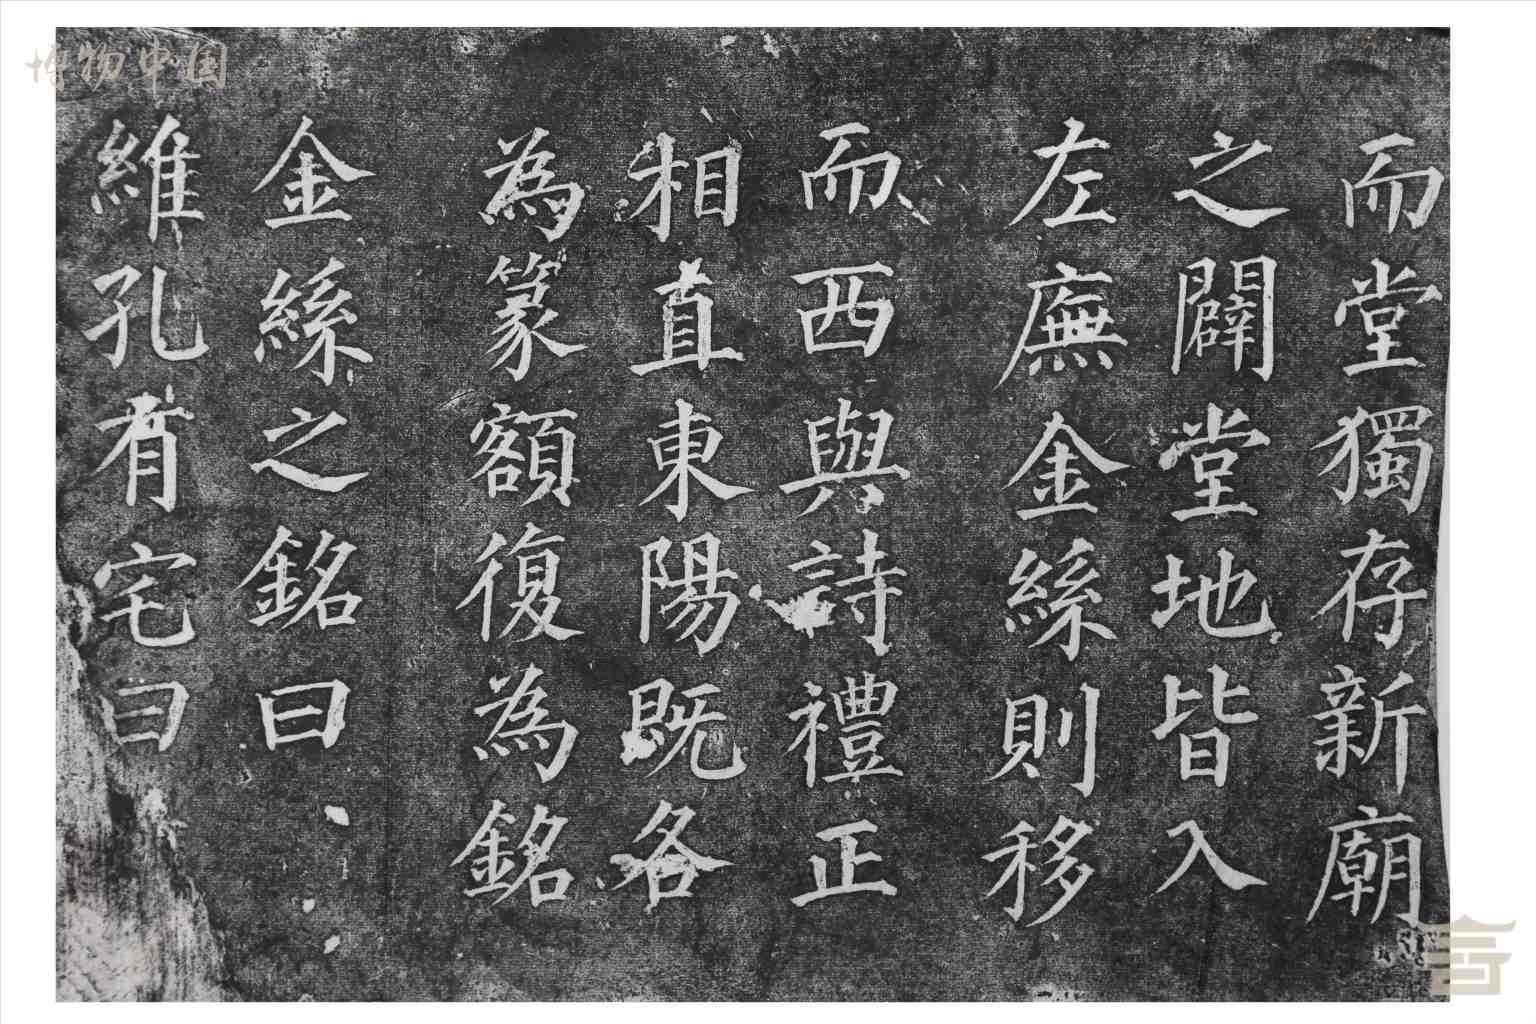 而堂獨存新廟
之闢堂地皆入
左廡金絲則移
而西與詩禮正
相直東陽既各
為篆額復為銘
金絲之銘曰
維孔有宅曰
博物中国